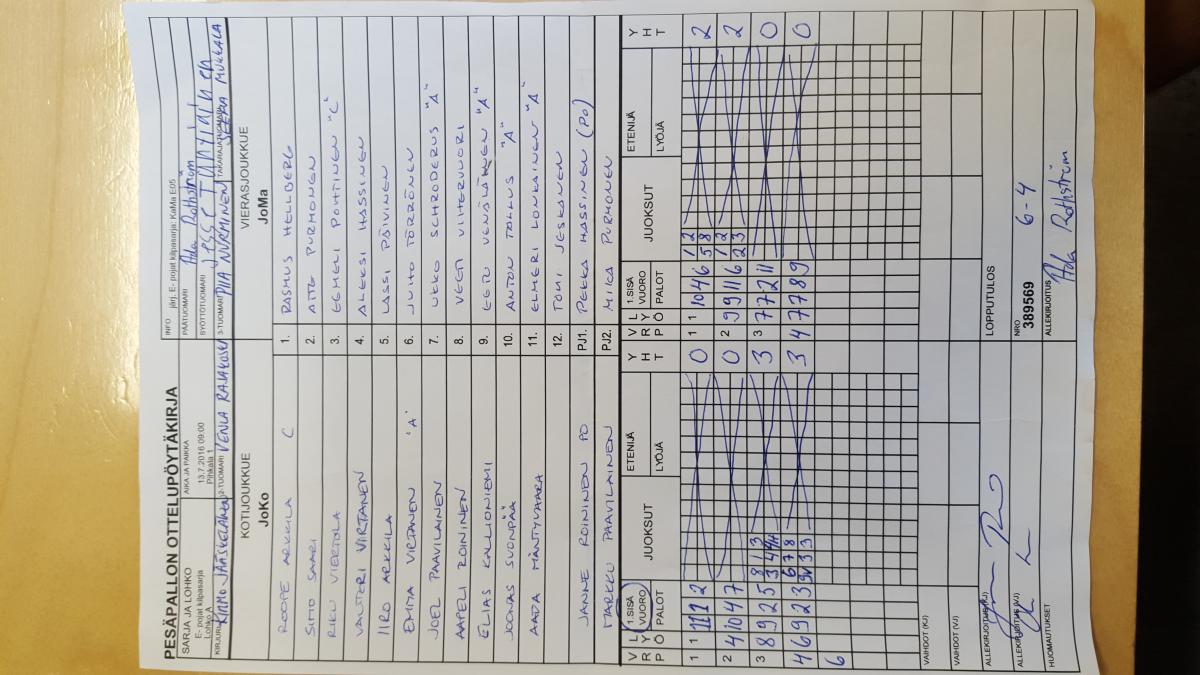 PESÄPALLON OTTELUPÖYTÄKIRJA
SARJA JA LOHKO
E- pojat kilpasarja
Lohko A
AIKA JA PAIKKA
13.7.2016 09:00
Pihkala 1
INFO järj. E- pojat kilpasarja: KaMa E05
PÄÄTUOMARI Ada Rothström
SYÖTTÖTUOMARI
KIRJURI 2-TUOMARI VENLA 3-TUOMARI PIIA NURMINEN TAKARAJATUOMARI MUKKALA
KOTIJOUKKUE
JoKo
VIERASJOUKKUE
JoMa
ROOPE ARKKILA C 1. RASMUS HELLBERG
SIMO SAARI 2. ATTE PURMONEN
RIKU VIERTOLA 3. EEMELI POHTINEN "C"
VALTTERI VIRTANEN 4. ALEKSI HASSINEN
IIRO ARKKILA 5. LASSI PÖIVINEN
EMMA VIRTANEN "A" 6. JUHO TÖRRÖNEN
JOEL PAAVILAINEN 7. UKKO SCHRODERUS "A"
AAPELI ROININEN 8. VEETI VIHERVUORI
ELIAS KALLIONIEMI 9. EETU VENÄLÄINEN "A"
JOONAS SUONPÄÄ 10. ANTON "A"
AADA MÄNTYVAARA 11. ELMERI LONKAINEN "A"
12. TOMI JESKANEN
JANNE ROININEN PO PJ1. PEKKA HASSINEN (PO)
MARKKU PAAVILAINEN PJ2. MIKA PURMONEN
V R P L Y Ö 1.SISÄ VUORO PALOT JUOKSUT ETENIJÄ LYÖJÄ Y H T V R P L Y Ö 1.SISÄ VUORO PALOT JUOKSUT ETENIJÄ LYÖJÄ Y H T
1 1 11 1 2 0 1 1 10 4 6 1 2 2
5 8
2 4 10 4 7 0 2 9 9 11 6 1 2 2
2 3
3 8 9 2 5 8 1 3 3 3 7 7 2 11 0
3 4
4 6 9 2 3 6 7 8 3 4 7 7 8 9 0
3 3
6
VAIHDOT (KJ)
VAIHDOT (VJ)
ALLEKIRJOITUS (KJ)
ALLEKIRJOITUS (VJ)
HUOMAUTUKSET
LOPPUTULOS 6-4
NRO
389569
ALLEKIRJOITUS Ada Rothström